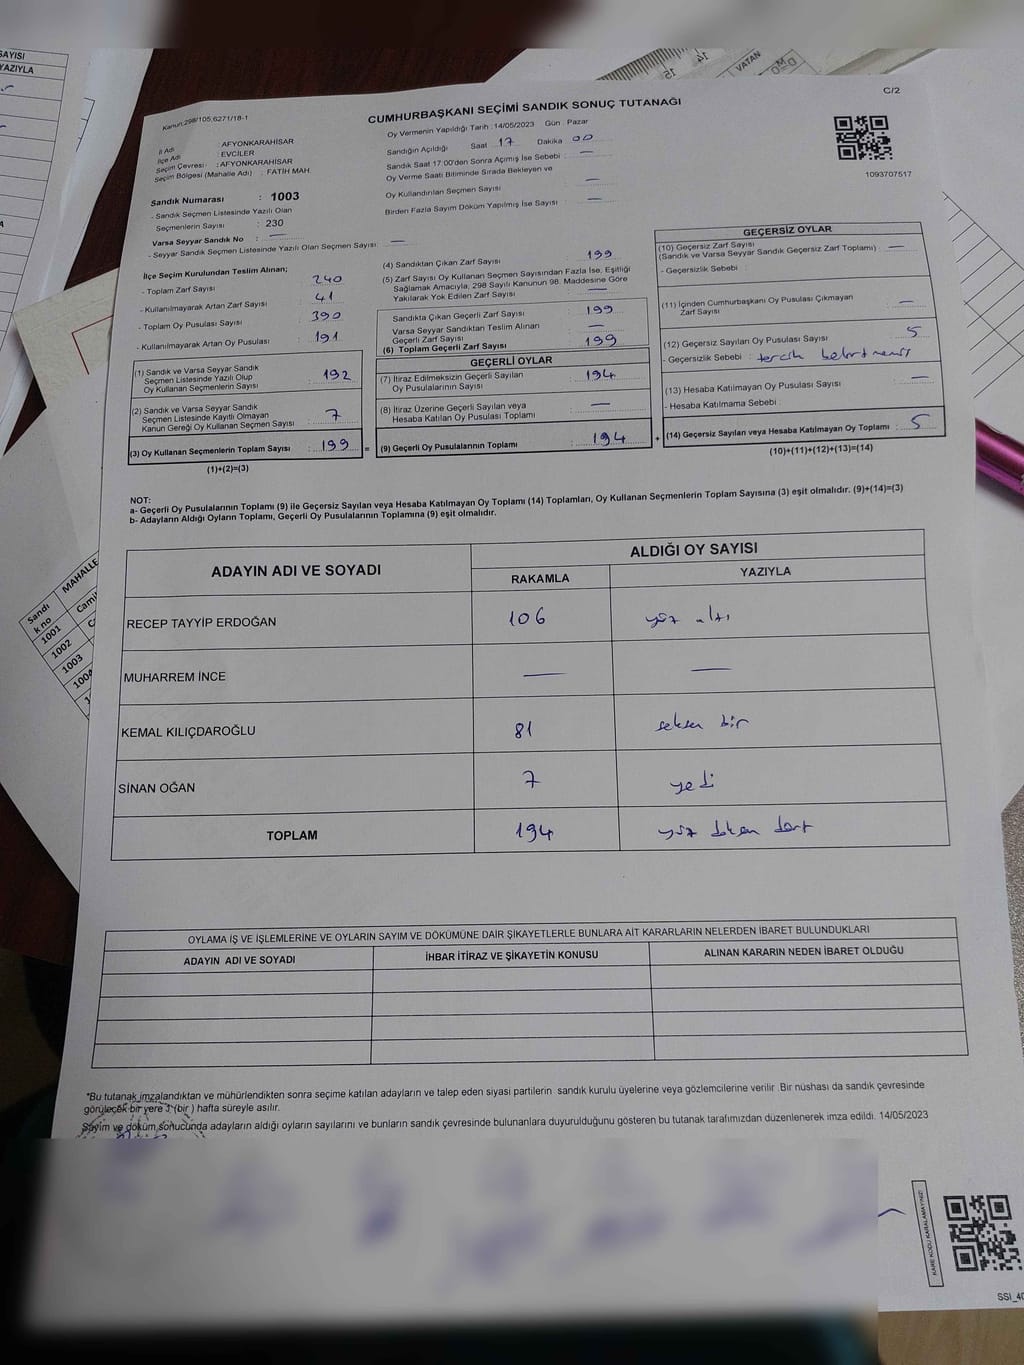 SAYISI
YAZIYLA
14
15
VATAN
C/2
Kanun:298/105;6271/18-1
CUMHURBAŞKANI SEÇİMİ SANDIK SONUÇ TUTANAĞI
1093707517
İl Adı : AFYONKARAHİSAR
İlçe Adı : EVCİLER
Seçim Çevresi : AFYONKARAHİSAR
Seçim Bölgesi (Mahalle Adı) : FATİH MAH.
Oy Vermenin Yapıldığı Tarih : 14/05/2023 Gün : Pazar
Sandığın Açıldığı Saat 17 Dakika 00
Sandık Saat 17:00'den Sonra Açımış İse Sebebi : —
Oy Verme Saati Bitiminde Sırada Bekleyen ve
Oy Kullandırılan Seçmen Sayısı : —
Birden Fazla Sayım Döküm Yapılmış İse Sayısı : —
Sandık Numarası : 1003
- Sandık Seçmen Listesinde Yazılı Olan
Seçmenlerin Sayısı : 230
Varsa Seyyar Sandık No : —
- Seyyar Sandık Seçmen Listesinde Yazılı Olan Seçmen Sayısı: —
İlçe Seçim Kurulundan Teslim Alınan;
- Toplam Zarf Sayısı : 240
- Kullanılmayarak Artan Zarf Sayısı : 41
- Toplam Oy Pusulası Sayısı : 390
- Kullanılmayarak Artan Oy Pusulası : 191
(1) Sandık ve Varsa Seyyar Sandık
Seçmen Listesinde Yazılı Olup
Oy Kullanan Seçmenlerin Sayısı : 192
(2) Sandık ve Varsa Seyyar Sandık
Seçmen Listesinde Kayıtlı Olmayan
Kanun Gereği Oy Kullanan Seçmen Sayısı : 7
(3) Oy Kullanan Seçmenlerin Toplam Sayısı : 199 =
(1)+(2)=(3)
(4) Sandıktan Çıkan Zarf Sayısı : 199
(5) Zarf Sayısı Oy Kullanan Seçmen Sayısından Fazla İse, Eşitliği
Sağlamak Amacıyla, 298 Sayılı Kanunun 98. Maddesine Göre
Yakılarak Yok Edilen Zarf Sayısı : —
Sandıkta Çıkan Geçerli Zarf Sayısı : 199
Varsa Seyyar Sandıktan Teslim Alınan
Geçerli Zarf Sayısı : —
(6) Toplam Geçerli Zarf Sayısı : 199
GEÇERLİ OYLAR
(7) İtiraz Edilmeksizin Geçerli Sayılan
Oy Pusulalarının Sayısı : 194
(8) İtiraz Üzerine Geçerli Sayılan veya
Hesaba Katılan Oy Pusulası Toplamı : —
(9) Geçerli Oy Pusulalarının Toplamı : 194 +
GEÇERSİZ OYLAR
(10) Geçersiz Zarf Sayısı
(Sandık ve Varsa Seyyar Sandık Geçersiz Zarf Toplamı) : —
- Geçersizlik Sebebi :
(11) İçinden Cumhurbaşkanı Oy Pusulası Çıkmayan
Zarf Sayısı : —
(12) Geçersiz Sayılan Oy Pusulası Sayısı : 5
- Geçersizlik Sebebi : tercih belirtmemiş
(13) Hesaba Katılmayan Oy Pusulası Sayısı : —
- Hesaba Katılmama Sebebi :
(14) Geçersiz Sayılan veya Hesaba Katılmayan Oy Toplamı : 5
(10)+(11)+(12)+(13)=(14)
NOT:
a- Geçerli Oy Pusulalarının Toplamı (9) ile Geçersiz Sayılan veya Hesaba Katılmayan Oy Toplamı (14) Toplamları, Oy Kullanan Seçmenlerin Toplam Sayısına (3) eşit olmalıdır. (9)+(14)=(3)
b- Adayların Aldığı Oyların Toplamı, Geçerli Oy Pusulalarının Toplamına (9) eşit olmalıdır.
ADAYIN ADI VE SOYADI
ALDIĞI OY SAYISI
RAKAMLA YAZIYLA
RECEP TAYYİP ERDOĞAN 106 yüz altı
MUHARREM İNCE — —
KEMAL KILIÇDAROĞLU 81 seksen bir
SİNAN OĞAN 7 yedi
TOPLAM 194 yüz doksan dört
Sandı
k no
MAHALLE
1001
1002
1003
OYLAMA İŞ VE İŞLEMLERİNE VE OYLARIN SAYIM VE DÖKÜMÜNE DAİR ŞİKAYETLERLE BUNLARA AİT KARARLARIN NELERDEN İBARET BULUNDUKLARI
ADAYIN ADI VE SOYADI İHBAR İTİRAZ VE ŞİKAYETİN KONUSU ALINAN KARARIN NEDEN İBARET OLDUĞU
*Bu tutanak imzalandıktan ve mühürlendikten sonra seçime katılan adayların ve talep eden siyasi partilerin sandık kurulu üyelerine veya gözlemcilerine verilir. Bir nüshası da sandık çevresinde
görülecek bir yere 1 (bir ) hafta süreyle asılır.
Sayım ve döküm sonucunda adayların aldığı oyların sayılarını ve bunların sandık çevresinde bulunanlara duyurulduğunu gösteren bu tutanak tarafımızdan düzenlenerek imza edildi. 14/05/2023
KARE KODU KARALAMAYINIZ!